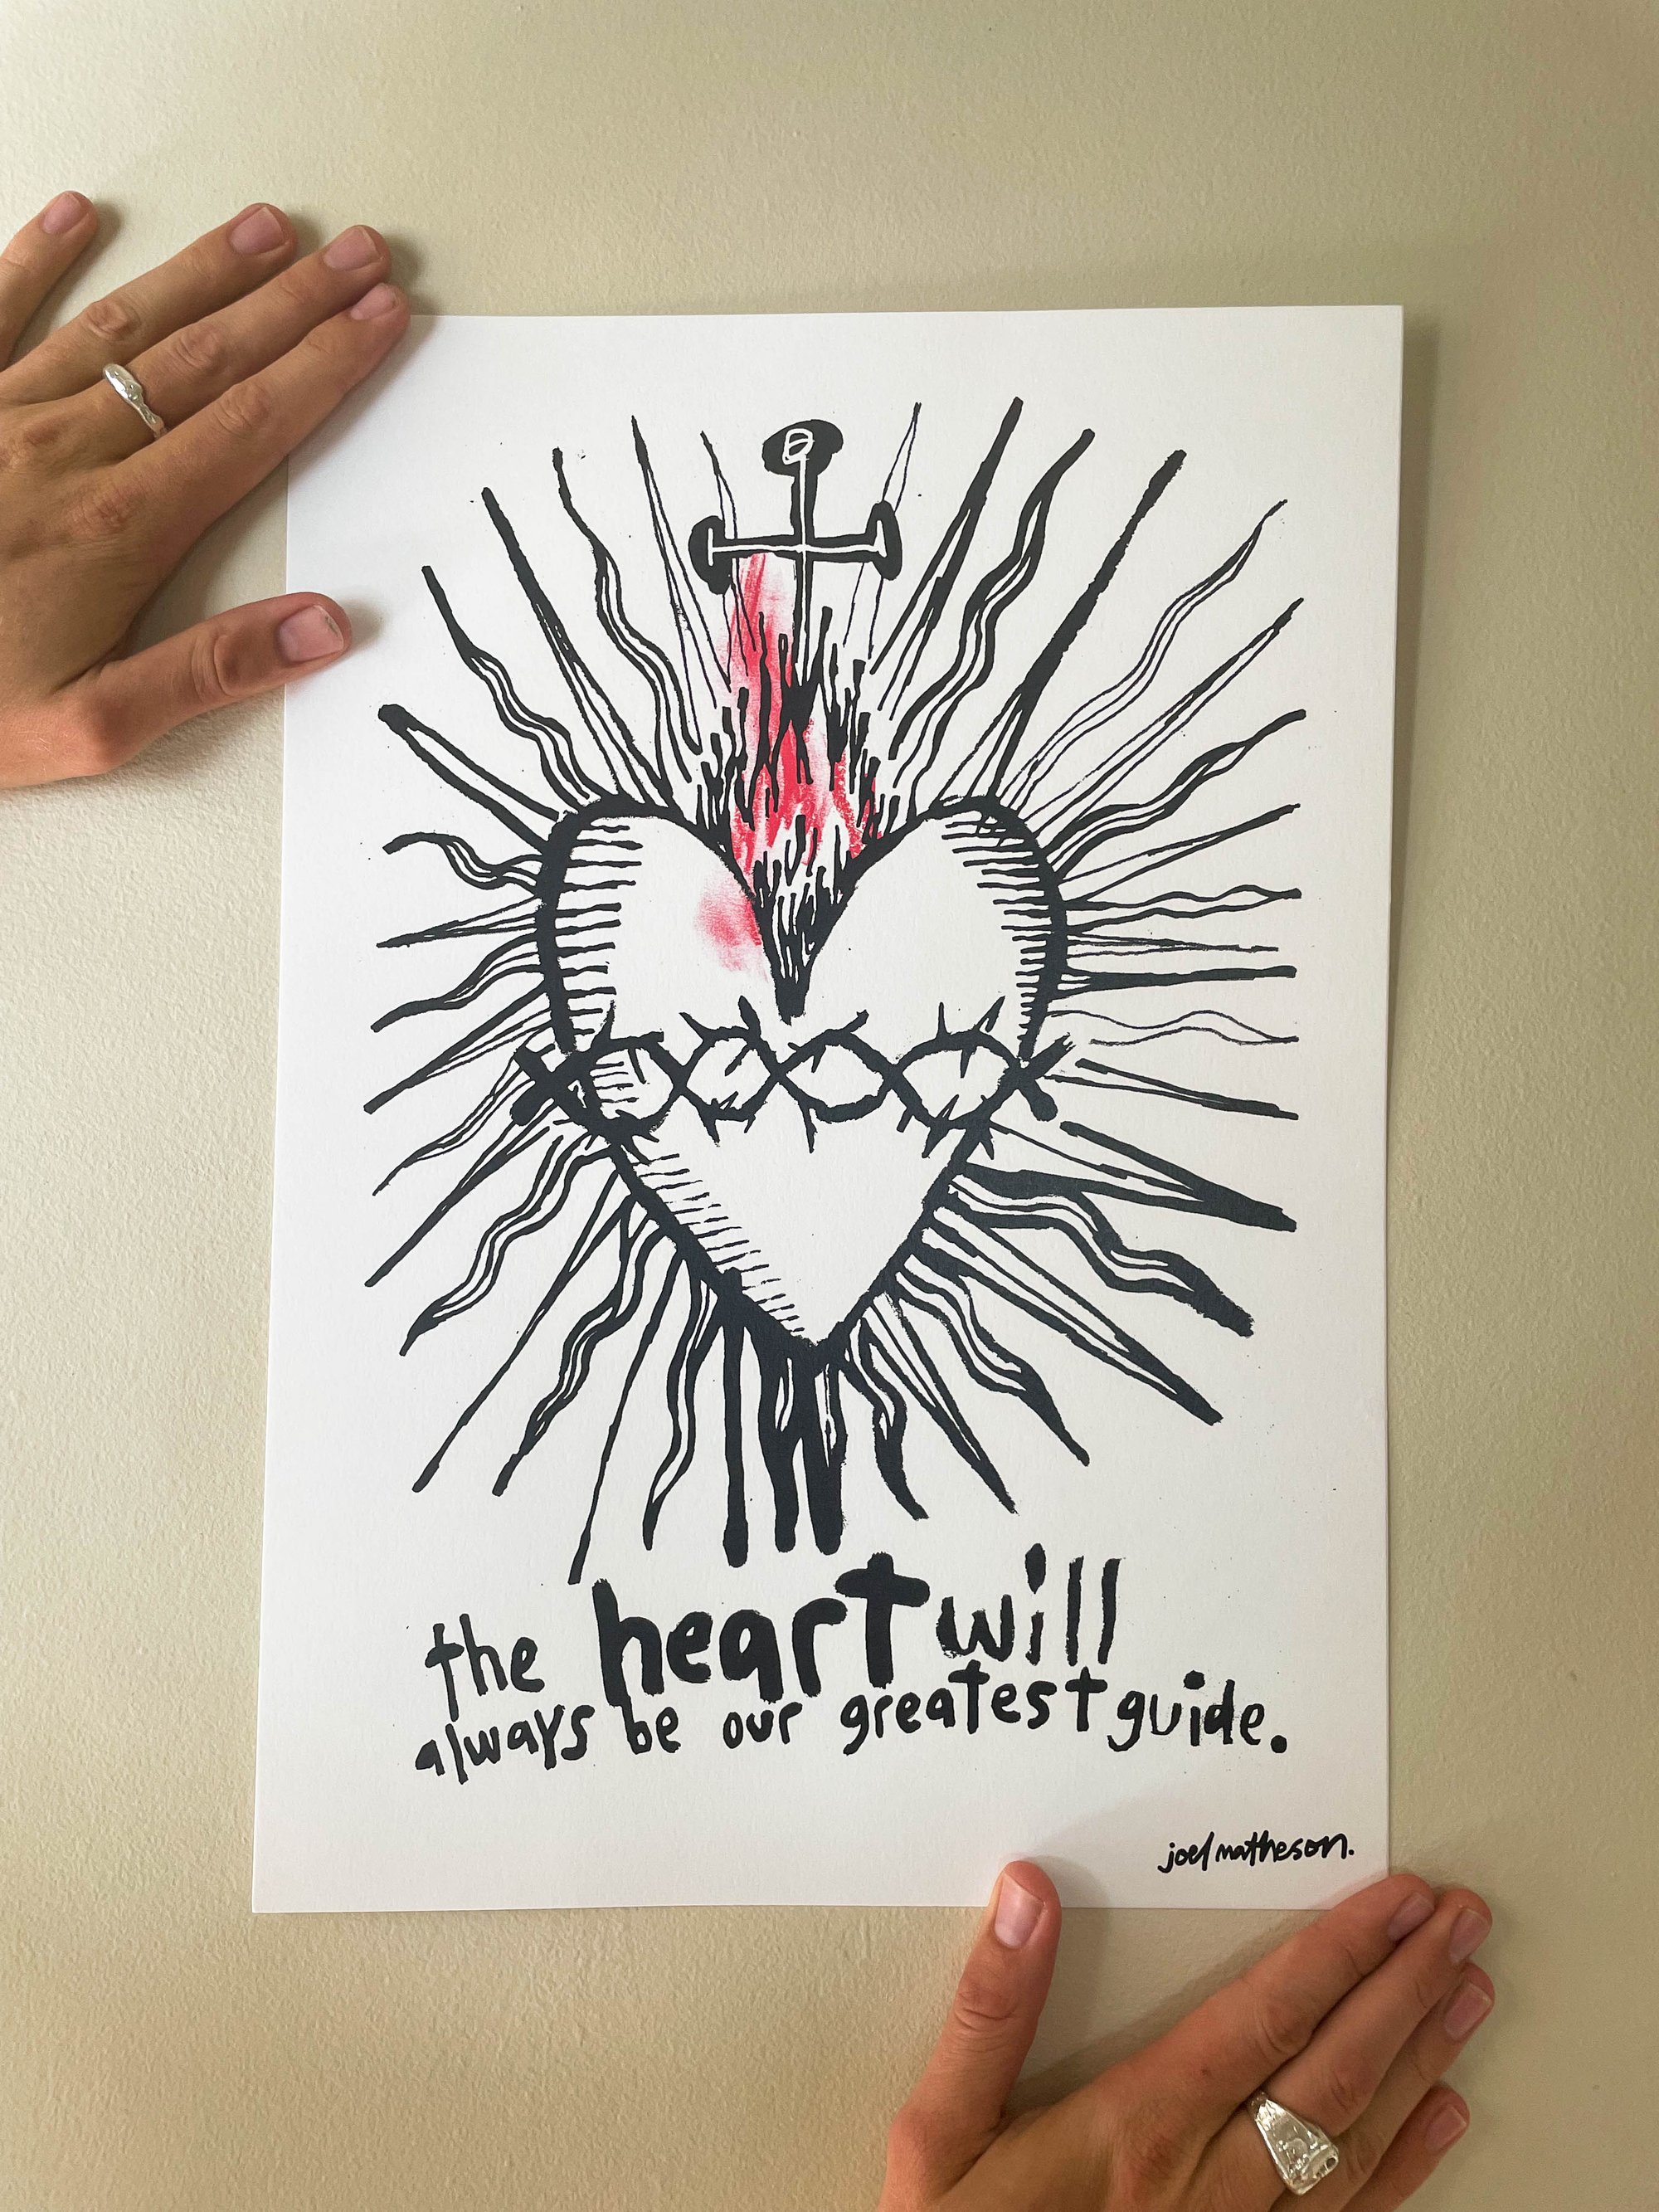 the heart will
always be our greatest guide.
joel matheson.